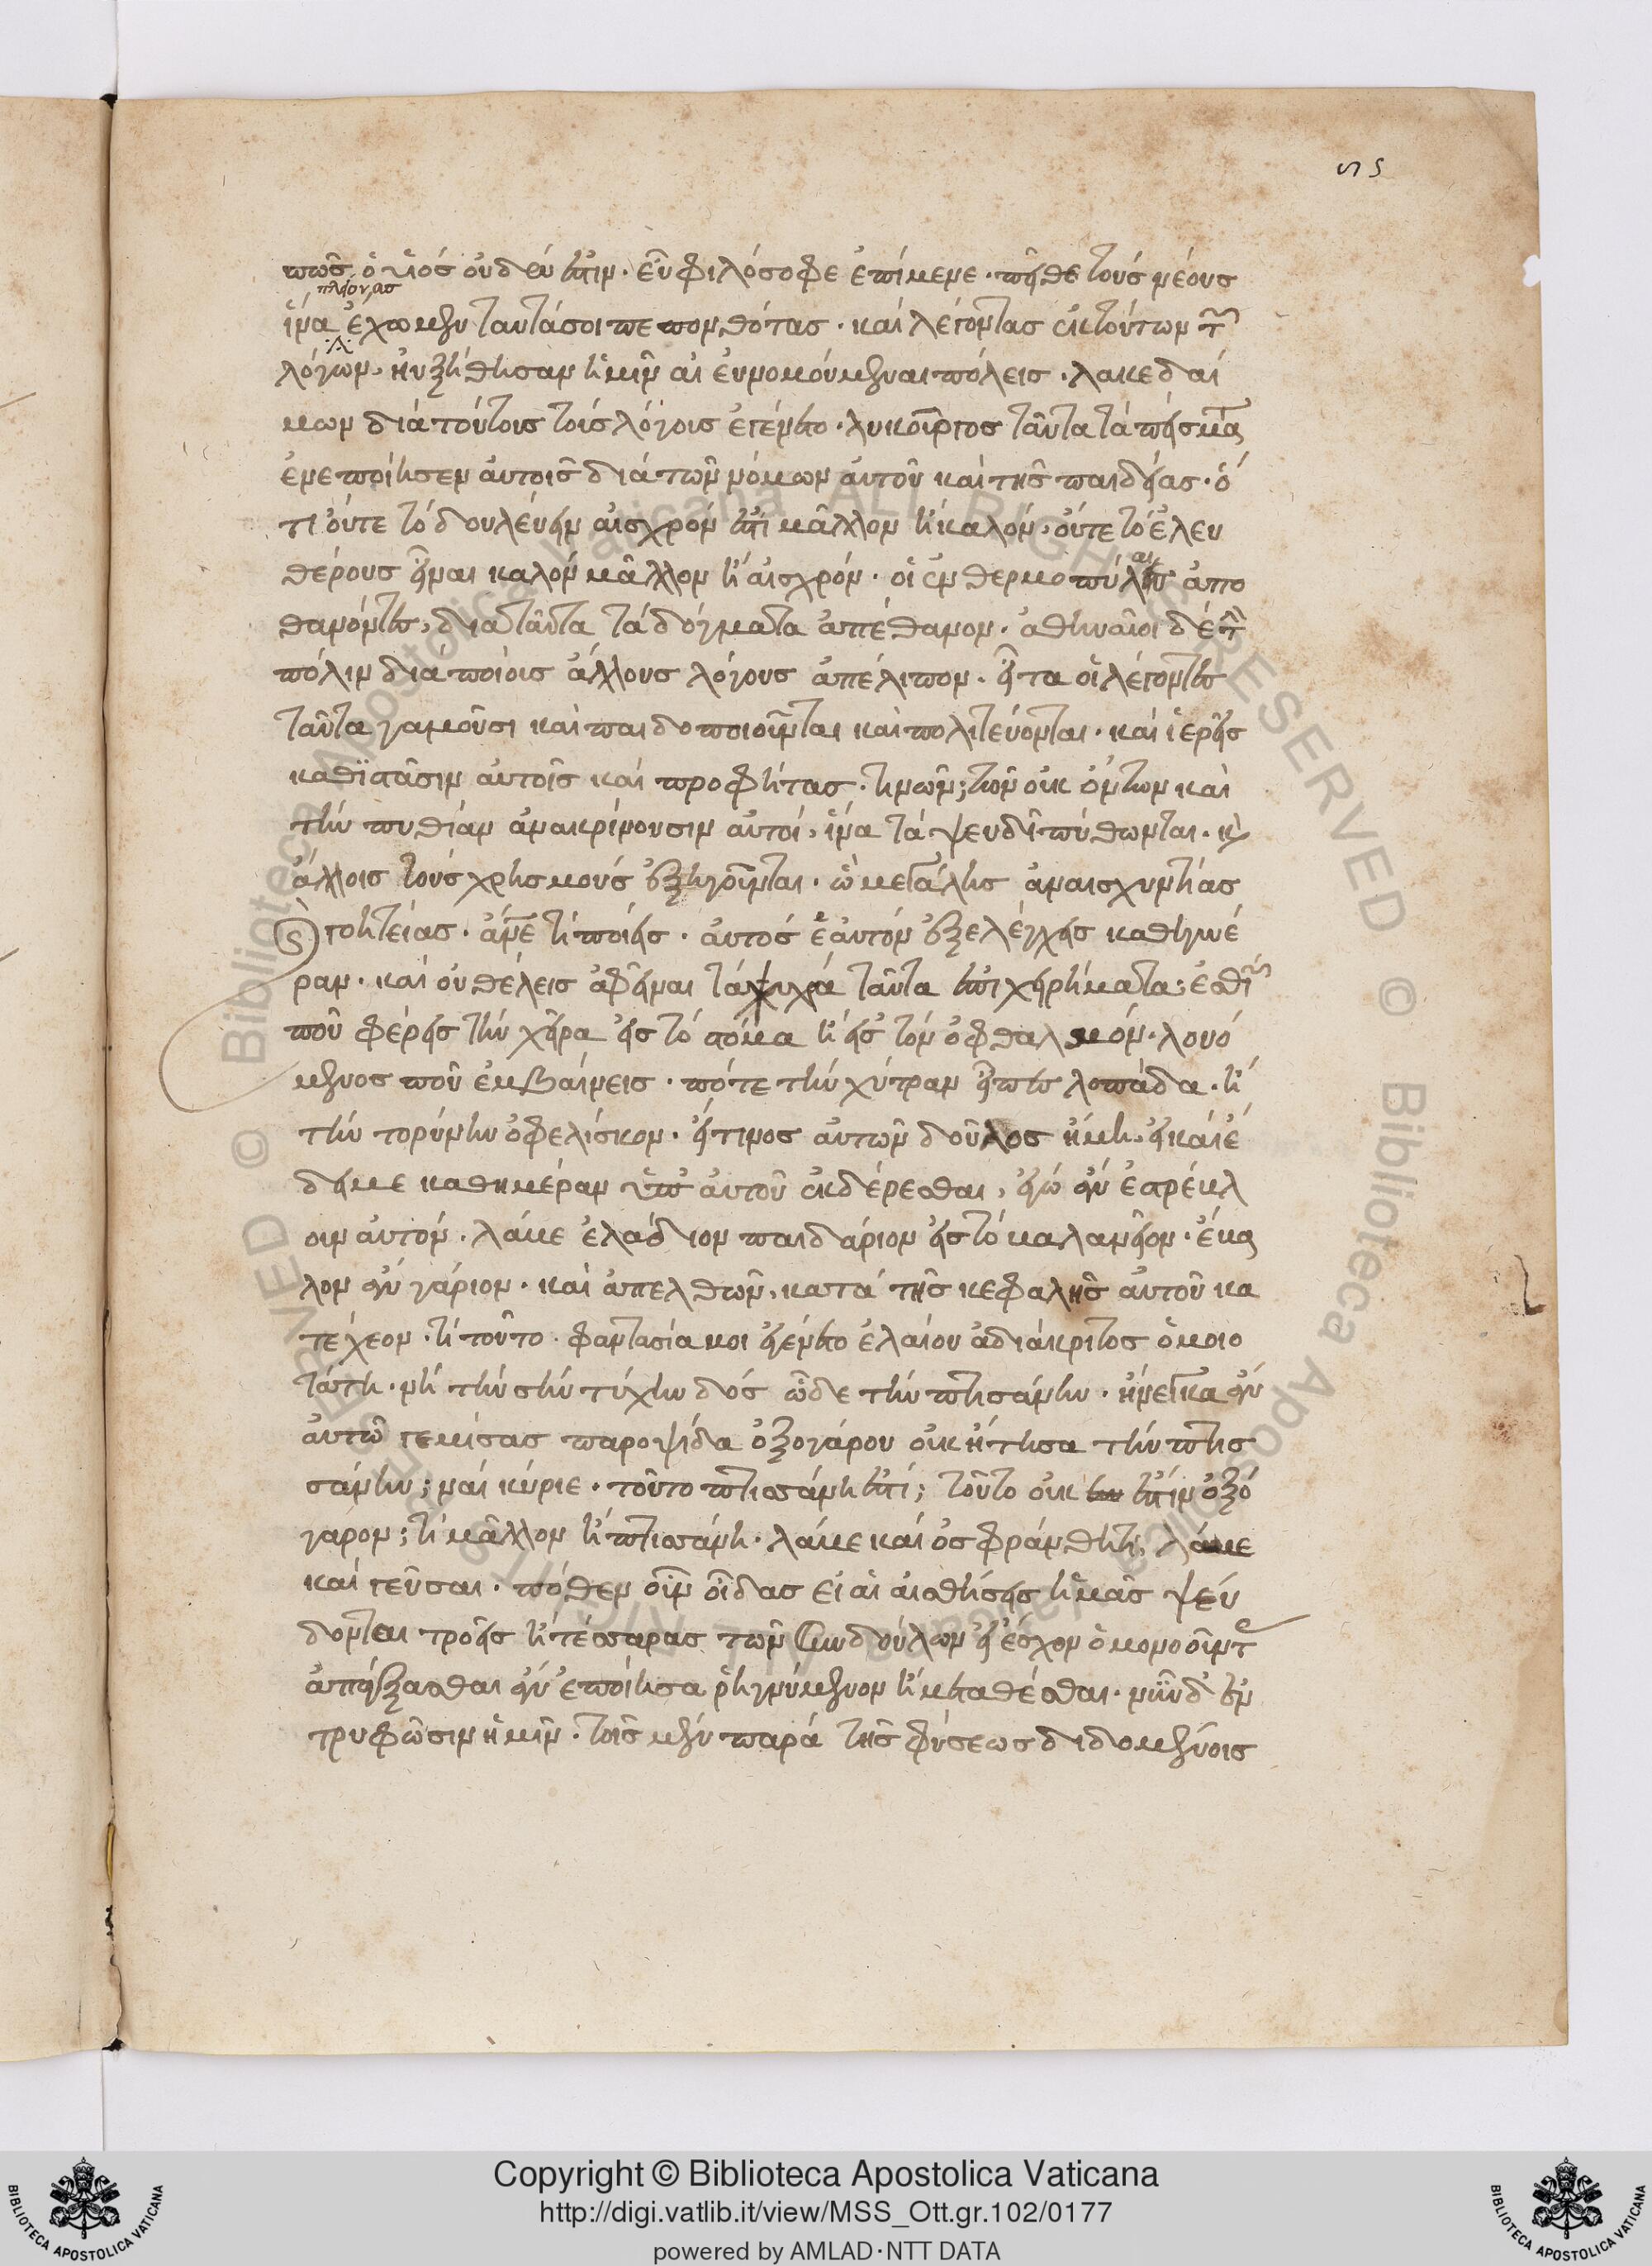 πς
πῶς ὁ υἱός οὐδέν ἐστιν. εὖ φιλόσοφε ἐπίμενε. πεῖθε τοὺς νέους
πλείονας
ἵνα ἔχωμεν ταυτά σοι πεπονθότας. καὶ λέγοντας ἐκ τούτων τῶν
λόγων. ηὐξήθησαν ἡμῖν αἱ εὐνομούμεναι πόλεις. λακεδαί
μων διὰ τούτους τοὺς λόγους ἐγένετο. λυκοῦργος ταῦτα τὰ πείσματα
ἐνεποίησεν αὐτοῖς διὰ τῶν νόμων αὐτοῦ καὶ τῆς παιδείας. ὅ
τι οὔτε τὸ δουλεύειν αἰσχρόν ἐστι μᾶλλον ἢ καλόν, οὔτε τὸ ἐλευ
θέρους εἶναι καλὸν μᾶλλον ἢ αἰσχρόν. οἱ ἐν θερμοπύλαις ἀπο
θανόντες, διὰ ταῦτα τὰ δόγματα ἀπέθανον. ἀθηναῖοι δὲ τὴν
πόλιν διὰ ποίους ἄλλους λόγους ἀπέλιπον. εἶτα οἱ λέγοντες
ταῦτα γαμοῦσι καὶ παιδοποιοῦνται καὶ πολιτεύονται. καὶ ἱερεῖς
καθιστᾶσιν αὑτοῖς καὶ προφήτας. τινῶν; τῶν οὐκ ὄντων καὶ
τὴν πυθίαν ἀνακρίνουσιν αὐτοί, ἵνα τὰ ψευδῆ πύθωνται. καὶ
ἄλλοις τοὺς χρησμοὺς ἐξηγοῦνται. ὢ μεγάλης ἀναισχυντίας
καὶ γοητείας. ἄνθρωπε τί ποιεῖς. αὐτὸς ἑαυτὸν ἐξελέγχεις καθημέ
ραν. καὶ οὐ θέλεις ἀφεῖναι τὰ ψυχρὰ ταῦτα ἐπιχειρήματα; ἐσθίων
ποῦ φέρεις τὴν χεῖρα εἰς τὸ στόμα ἢ εἰς τὸν ὀφθαλμόν. λουό
μενος ποῦ ἐμβαίνεις. πότε τὴν χύτραν εἶπες λοπάδα. ἢ
τὴν τορύνην ὀβελίσκον. εἴ τινος αὐτῶν δοῦλος ἤμην, εἰ καὶ ἔ
δει με καθημέραν ὑπ' αὐτοῦ ἐκδέρεσθαι, ἐγὼ ἂν ἐστρέβλ
ουν αὐτόν. βάλε ἐλάδιον παιδάριον εἰς τὸ βαλανεῖον. ἔβα
λον ἂν γάριον. καὶ ἀπελθὼν, κατὰ τῆς κεφαλῆς αὐτοῦ κα
τέχεον. τί τοῦτο. φαντασία μοι ἐγένετο ἐλαίου ἀδιάκριτος ὁμοιο
τάτη. νὴ τὴν σὴν τύχην δὸς ὧδε τὴν πτισάνην. ἤνεγκα ἂν
αὐτῷ γεμίσας παροψίδα ὀξογάρου οὐκ ᾔτησα τὴν πτισ
σάνην; ναὶ κύριε. τοῦτο πτισσάνη ἐστί; τοῦτο οὐκ ἔστιν ὀξό
γαρον; τί μᾶλλον ἢ πτισσάνη. λάβε καὶ ὀσφράνθητι, λάβε
καὶ γεῦσαι. πόθεν οὖν οἶδας εἰ αἱ αἰσθήσεις ἡμᾶς ψεύ
δονται τρεῖς ἢ τέσσαρας τῶν συνδούλων εἰ ἔσχον ὁμονοοῦντας
ἀπάγξασθαι ἂν ἐποίησα ῥηγνύμενον ἢ μεταθέσθαι. νῦν δ' ἐν
τρυφῶσιν ἡμῖν. τοῖς μὲν παρὰ τῆς φύσεως διδομένοις
Copyright © Biblioteca Apostolica Vaticana
http://digi.vatlib.it/view/MSS_Ott.gr.102/0177
powered by AMLAD·NTT DATA